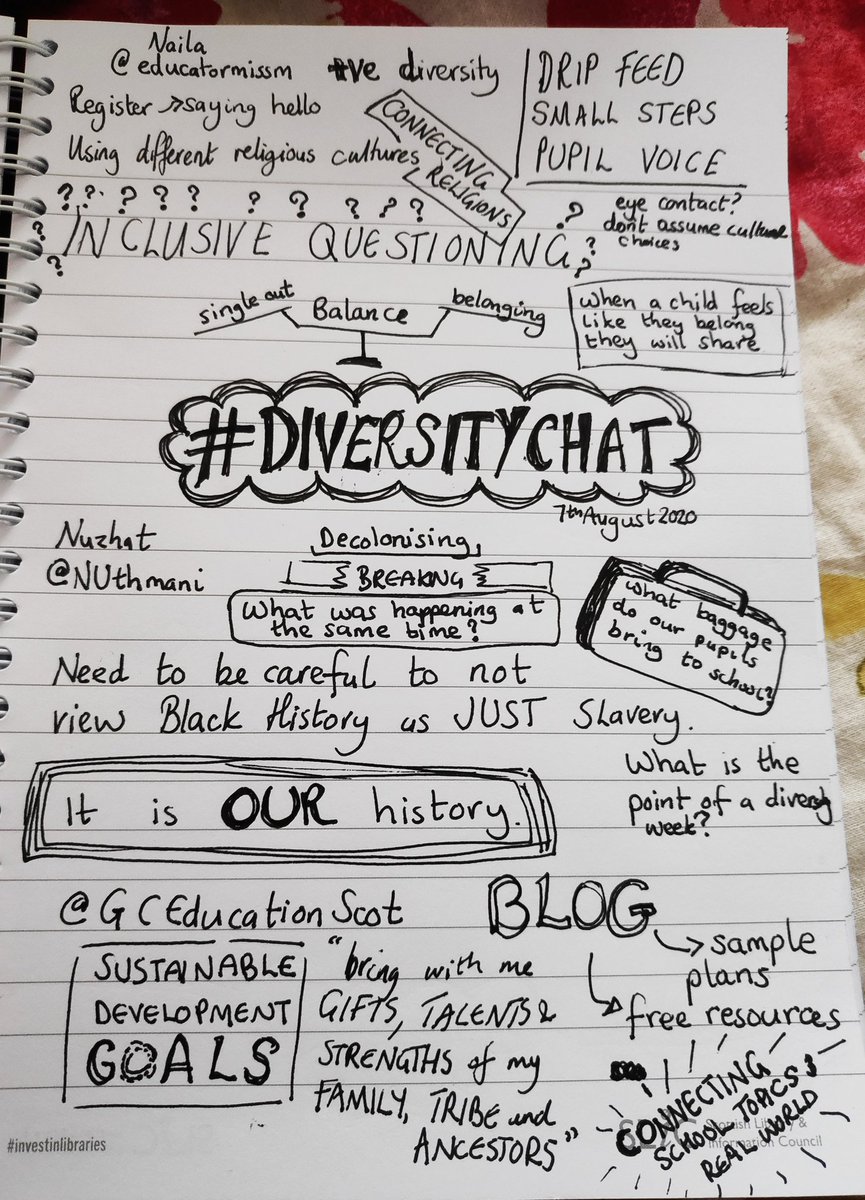 Naila
@educatormissm
+ve diversity
Register → saying hello
Using different religious cultures
CONNECTING
RELIGIONS
DRIP FEED
SMALL STEPS
PUPIL VOICE
? ? ? ? ? ? ? ? ? ?
INCLUSIVE QUESTIONING
eye contact?
don't assume cultural
choices
single out
Balance
belonging
When a child feels
like they belong
they will share
#DIVERSITYCHAT
7th August 2020
Nuzhat
@NUthmani
Decolonising
BREAKING
What was happening at
the same time?
What baggage
do our pupils
bring to school?
Need to be careful to not
view Black History as JUST Slavery.
It is OUR history.
What is the
point of a diversity
week?
@GCEducationScot
SUSTAINABLE
DEVELOPMENT
GOALS
"bring with me
GIFTS, TALENTS &
STRENGTHS of my
FAMILY, TRIBE and
ANCESTORS"
BLOG
→ sample
plans
→ free resources
CONNECTING
SCHOOL TOPICS &
REAL WORLD
#investinlibraries
Information Council